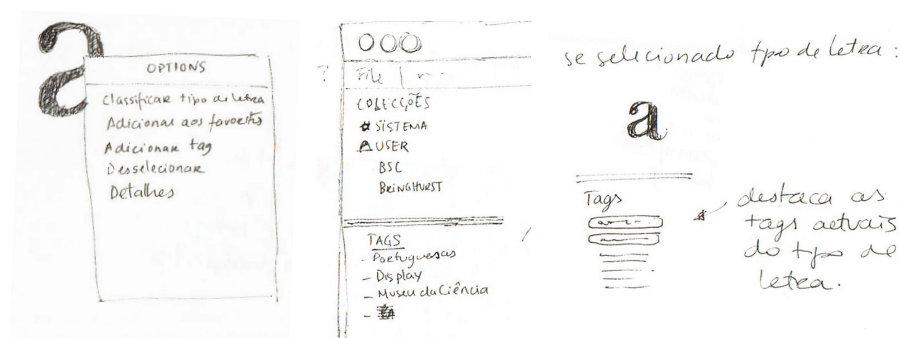 a
OPTIONS
Classificar tipo de letra
Adicionar aos favoritos
Adicionar tag
Desselecionar
Detalhes
?
File
COLECÇÕES
# SISTEMA
USER
BSC
BRINGHURST
TAGS
- Portuguesas
- Display
- Museu da Ciência
-
se selecionado tipo de letra:
a
Tags
destaca as
tags actuais
do tipo de
letra.